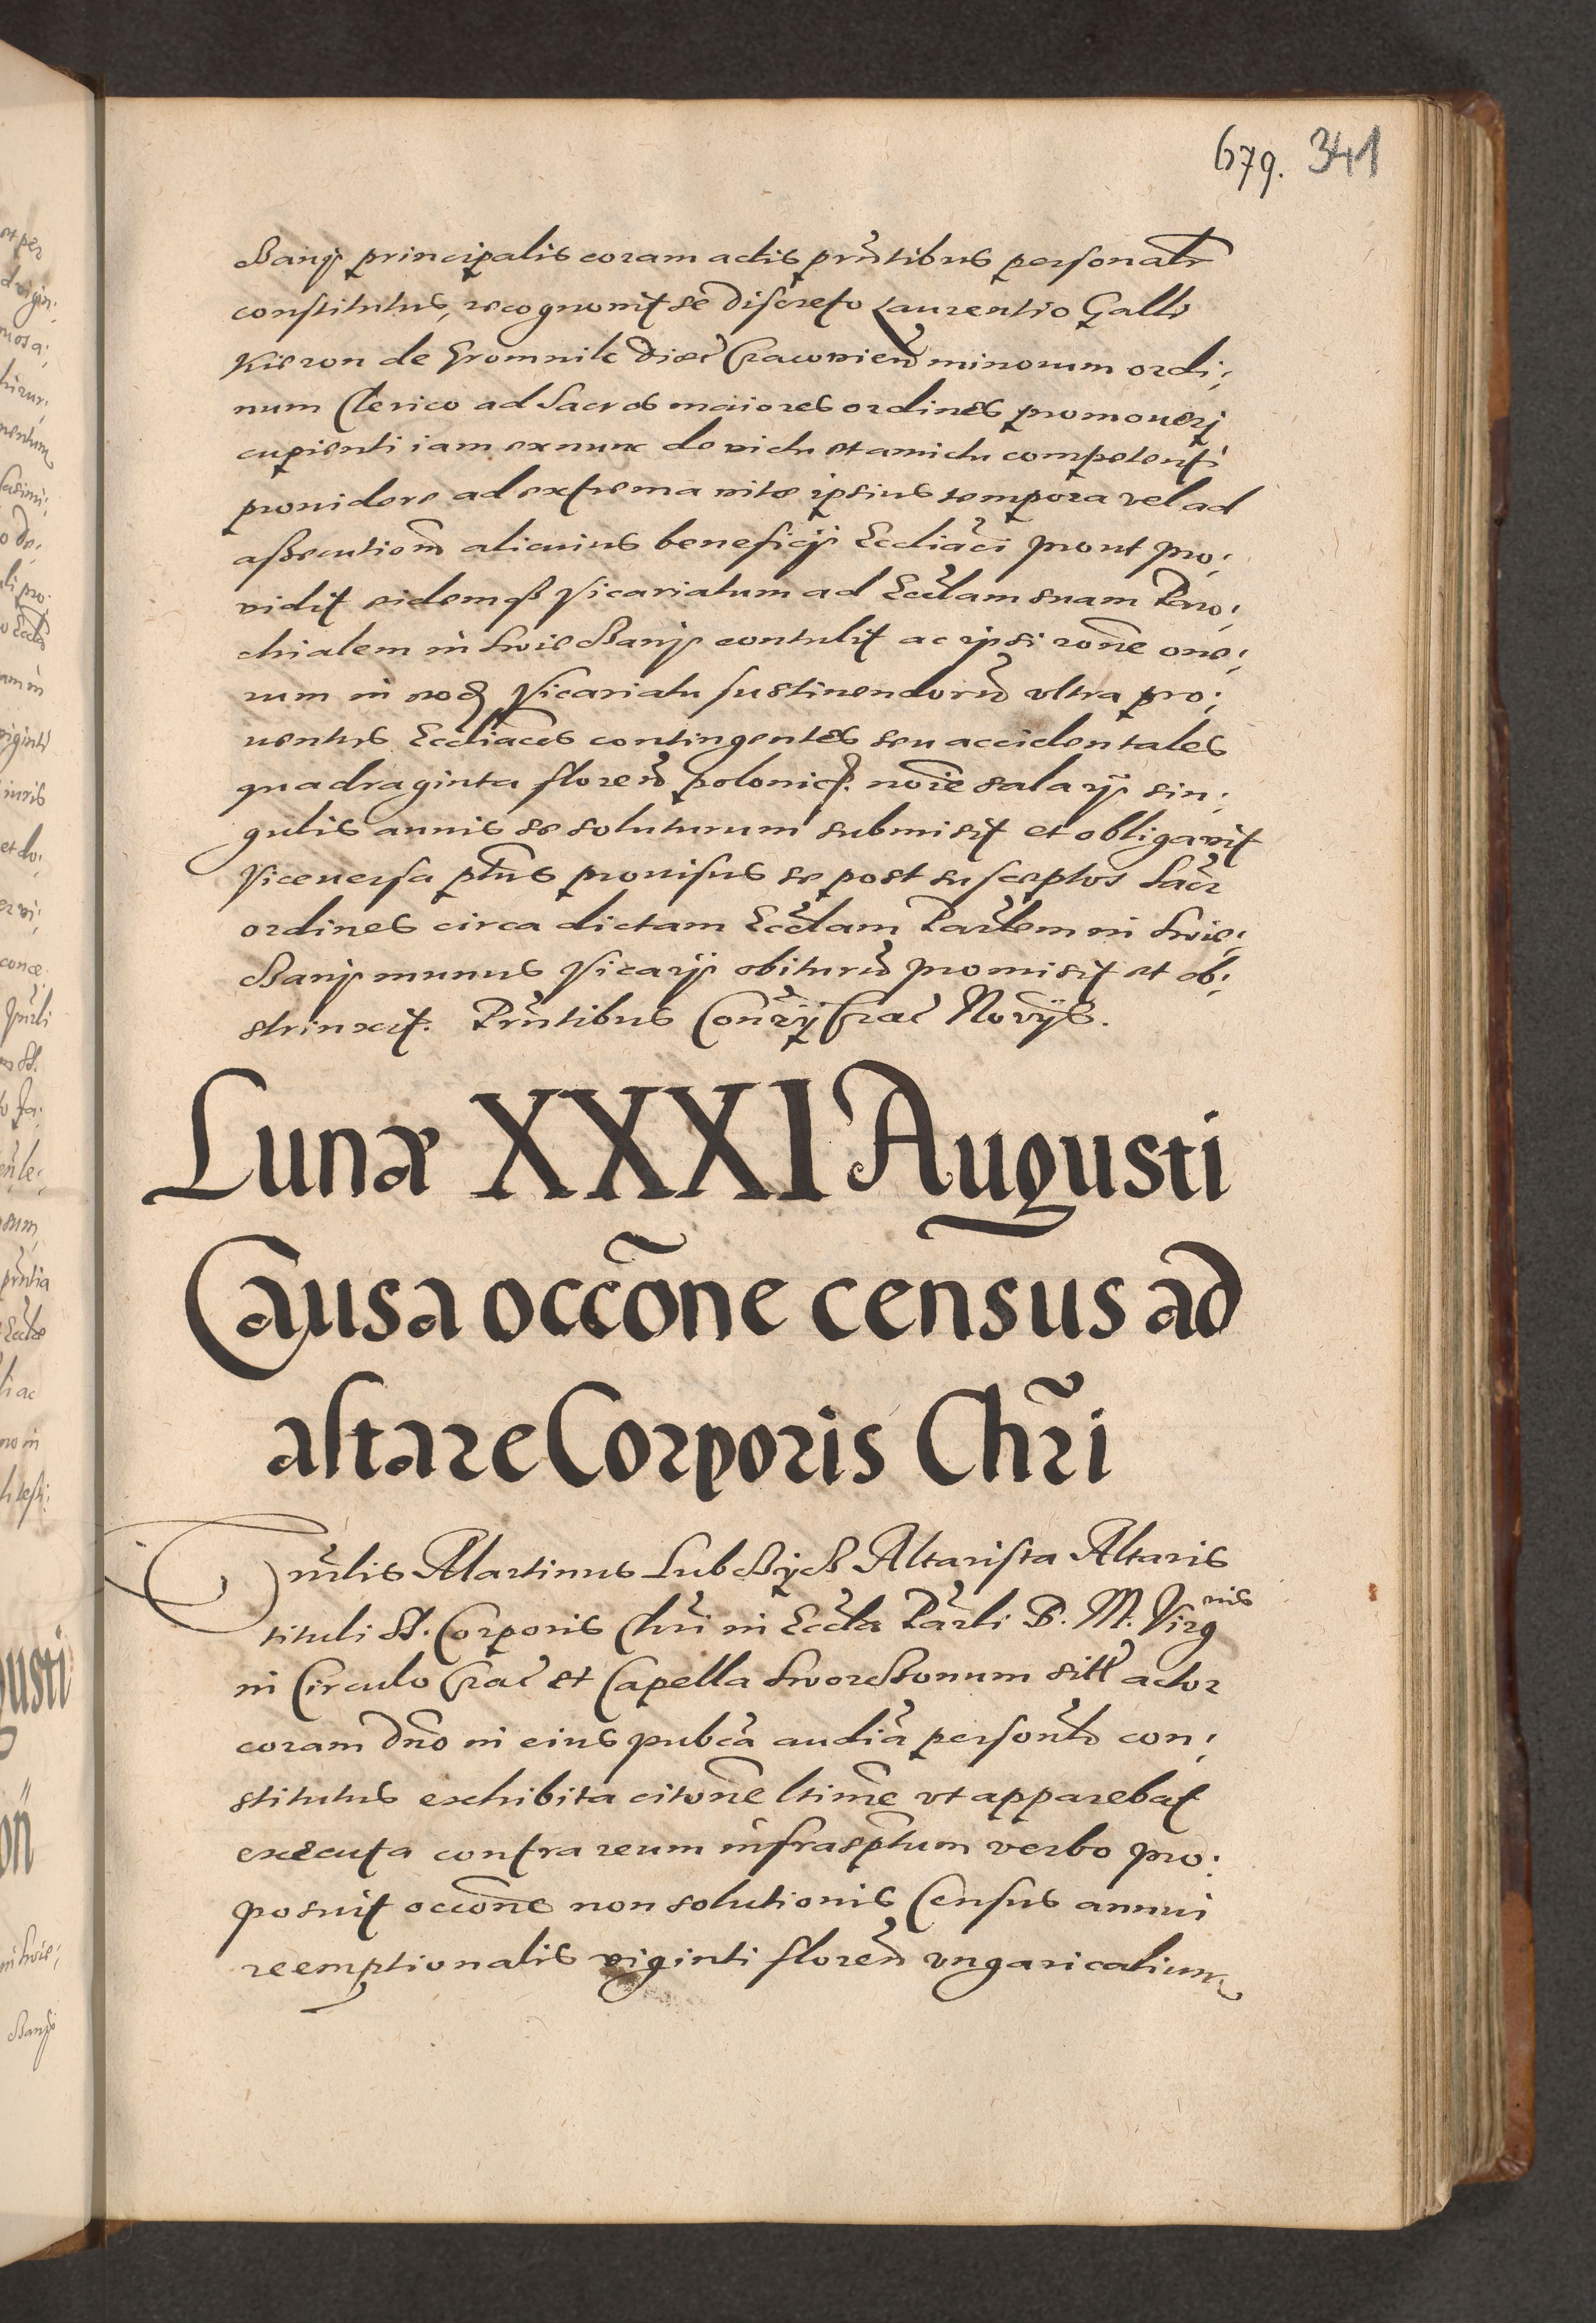 679. 341
Banÿ principalis coram actis pñtibus personalr
constitutus, recognovit se discreto Laurentio Galli
Kieron de Gromnik dioec̃ Cracovien̄ minorum ordi:
num Clerico ad sacros maiores ordines promoveri
cupienti iam ex nunc de victu et amictu competenti
providere ad extrema vitæ ipsius tempora vel ad
assecutiom̃ alicuius beneficÿ Eccliãci prout pro:
vidit eidemqȝ Vicariatum ad Eccl̃am suam Paro:
chialem in Swie Banÿ contulit ac ipsi rõne one:
rum in eod Vicariatu sustinendorũ ultra pro:
ventus Eccliacos contingentes seu accidentales
quadraginta floren̄ polonic. noĩe salarÿ sin:
gulis annis se soluturum submisit et obligavit
Viceversa pt̃us provisus se post susceptos Sacr̃
ordines circa dictam Eccl̃am Par̃lem in Swie:
Banÿ munus Vicarÿ obiturũ promisit et ob:
strinxit. Pñtibus Con̄rÿ Crac̃ Novÿs.
Lunæ XXXI Augusti
Causa occõne census ad
altare Corporis Chr̃i
Vñlis Martinus Lub Altarista Altaris
tituli SS. Corporis Chr̃i in Eccl̃a Par̃li B. M. Virg nis
in Circulo Crac̃ et Capella sitt̃ actor
coram Dño in eius pub̃ca audiã personl̃r con:
stitutus exhibita citõne l̃time ut apparebat
executa contra reum infrasp̃tum verbo pro:
posuit occõne non solutionis Census annui
reemptionalis viginti floren̄ ungaricalium